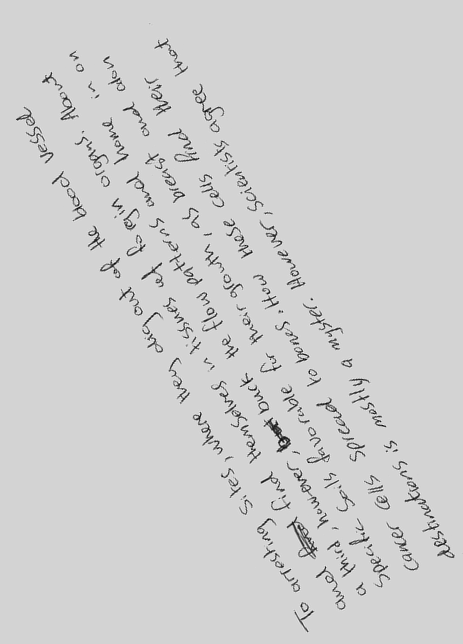 To arresting sites, where they clug out of the blood vessel
and find themselves in tissues of forein organs. About
a third, however, buck the flow patterns and home in on
specific soils favorable for their growth, as breast and
cancer cells spread to bones. How these cells find their
destinations is mostly a myster. However, scientists agree that